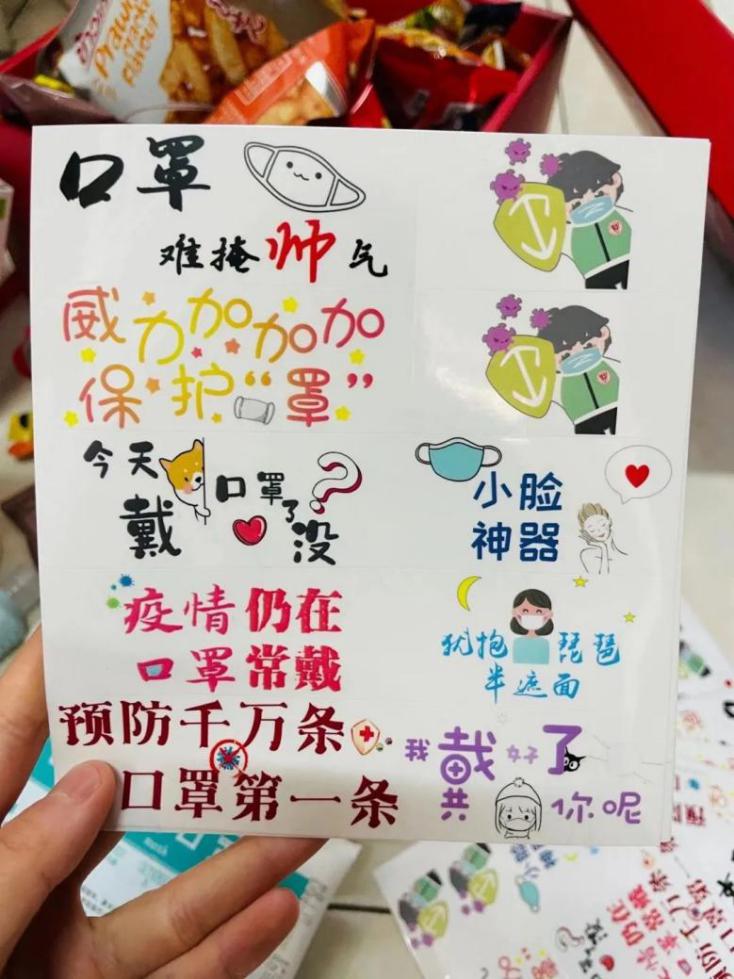 Prawn
flavour
口罩
难掩帅气
威力加加加
保护“罩”
今天
戴口罩了没
小脸
神器
疫情仍在
口罩常戴
犹抱琵琶
半遮面
预防千万条
口罩第一条
我戴好了
你呢